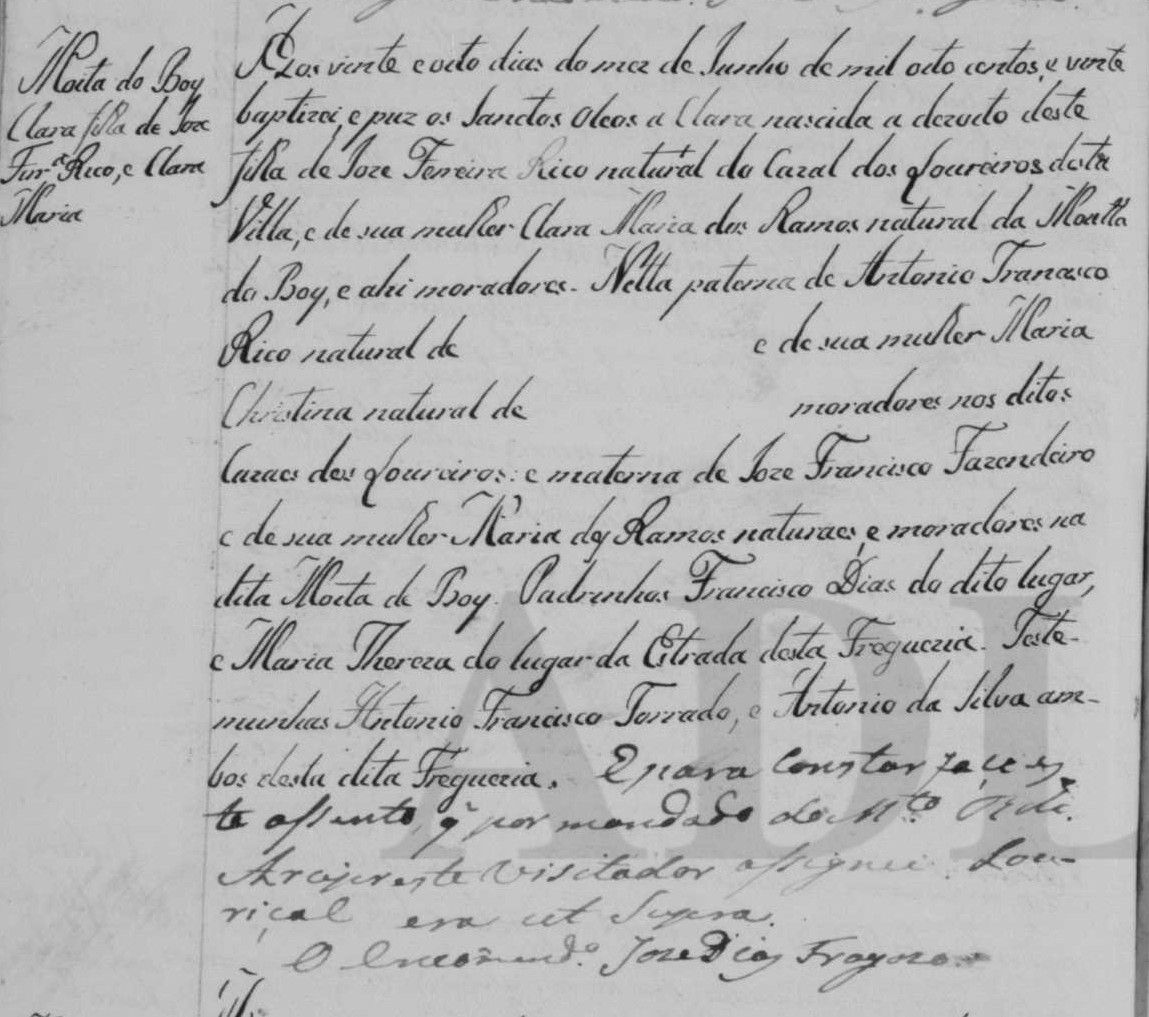 Moita do Boy
Clara filha de Joze
Ferr.ª Rico, e Clara
Maria
Aos vinte e oito dias do mez de Junho de mil oito centos, e vinte
baptizei, e puz os Sanctos Oleos a Clara nascida a dezoito deste
filha de Joze Ferreira Rico natural do Cazal dos Loureiros desta
Villa, e de sua mulher Clara Maria dos Ramos natural da Moitta
do Boy, e ahi moradores. Netta paterna de Antonio Francisco
Rico natural de e de sua mulher Maria
Christina natural de moradores nos ditos
Cazaes dos Loureiros: e materna de Joze Francisco Fazendeiro
e de sua mulher Maria dos Ramos naturaes, e moradores na
dita Moita do Boy. Padrinhos Francisco Dias do dito lugar,
e Maria Thereza do lugar da Estrada desta Freguezia. Teste-
munhas Antonio Francisco Torrado, e Antonio da Silva am-
bos desta dita Freguezia. E para constar face es
te assento, q̃ por mandado do M.to R.do
Arcipreste Visitador assignei. Lou-
riçal era ut supra.
O Encõmend.º Joze Dias Fragozo
ADL